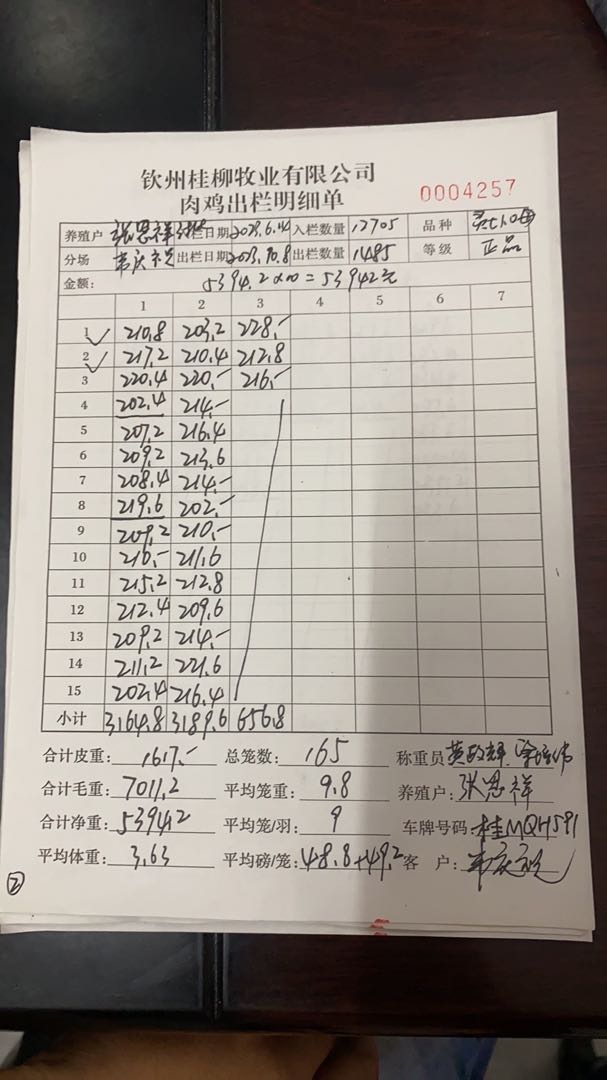 钦州桂柳牧业有限公司
肉鸡出栏明细单
0004257
养殖户 张恩祥 栏日期 2023.6.14 入栏数量 12705 品种
分场 出栏日期 2023.10.8 出栏数量 1485 等级 正品
金额: 5394.2×10=53942元
1 2 3 4 5 6 7
1 210.8 203.2 228.-
2 217.2 210.4 212.8
3 220.4 220.- 216.-
4 202.4 214.-
5 207.2 216.4
6 209.2 213.6
7 208.4 214.-
8 219.6 202.-
9 209.2 210.-
10 210.- 211.6
11 215.2 212.8
12 212.4 209.6
13 209.2 214.-
14 211.2 221.6
15 202.4 216.4
小计 3164.8 3189.6 656.8
合计皮重: 1617.- 总笼数: 165 称重员
合计毛重: 7011.2 平均笼重: 9.8 养殖户: 张恩祥
合计净重: 5394.2 平均笼/羽: 9 车牌号码: 桂MQH591
平均体重: 3.63 平均磅/笼: 48.8+49.2 客 户:
②